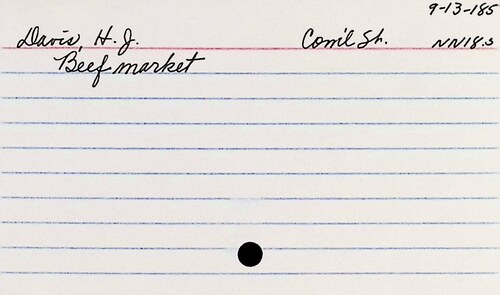 9-13-185
Davis, H. J. Com'l Sh. NN18.3
Beef market